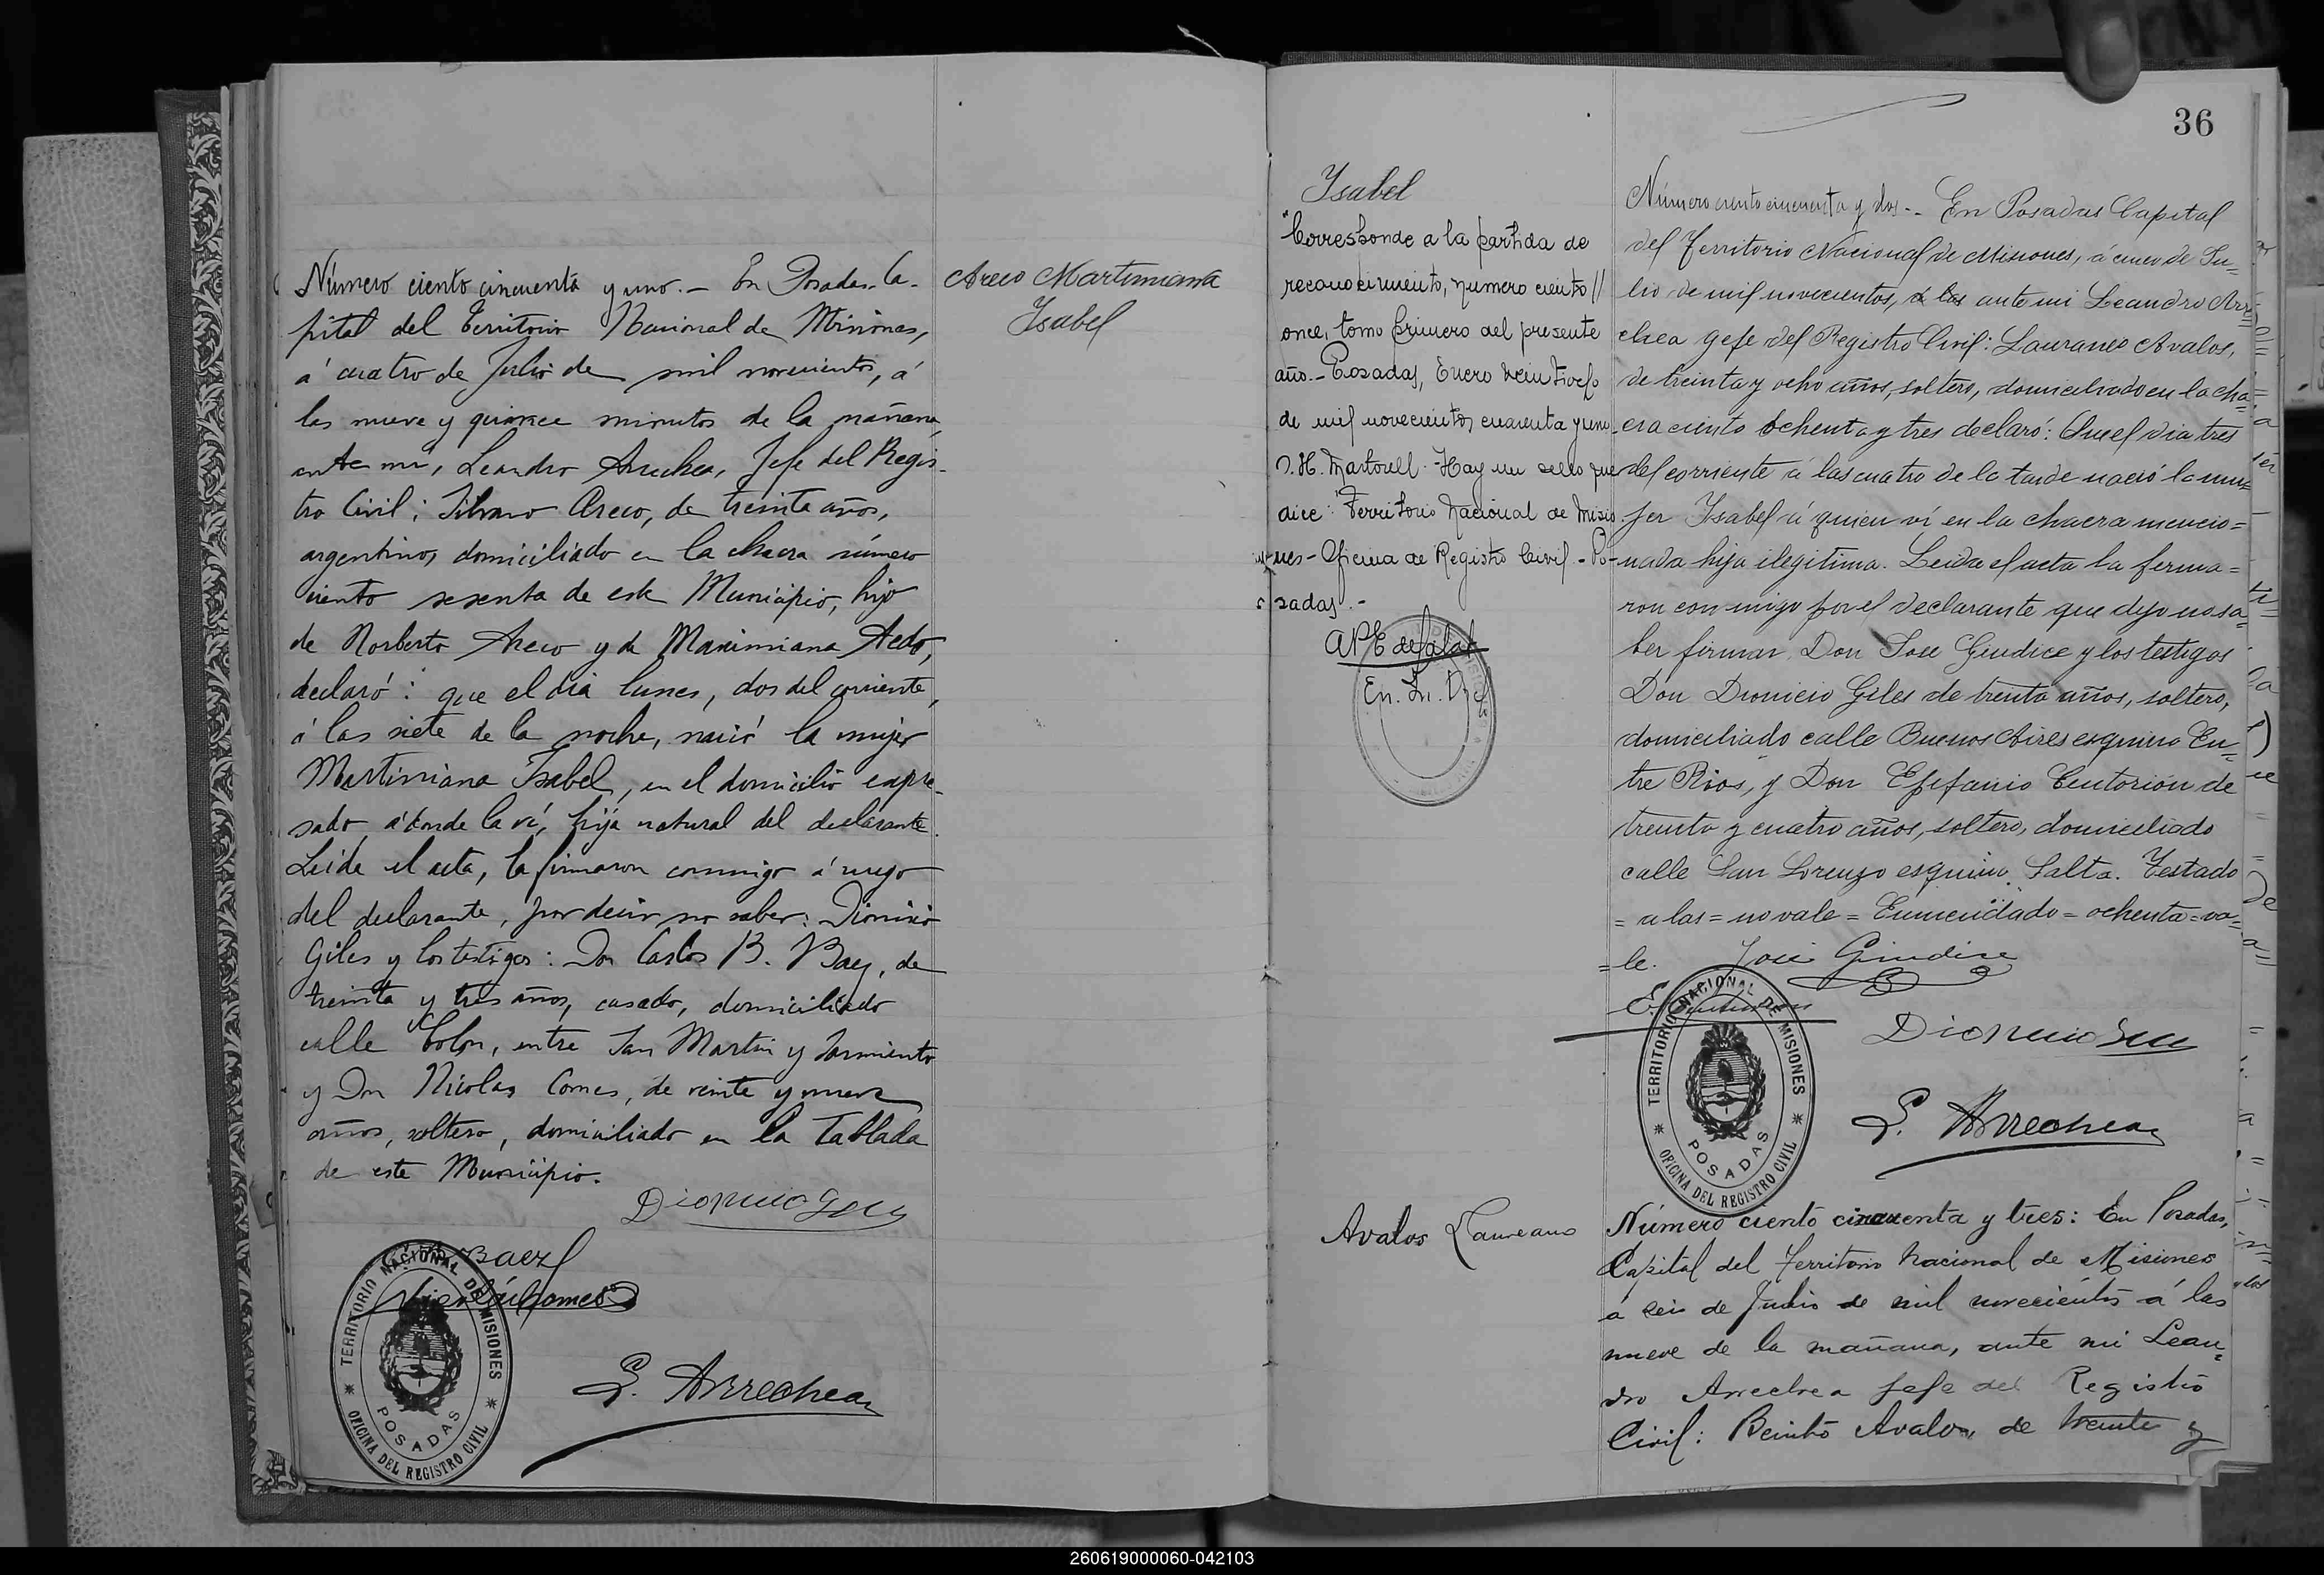 Número ciento cincuenta y uno. — En Posadas, Ca-
pital del Territorio Nacional de Misiones,
á cuatro de Julio de mil novecientos, á
las nueve y quince minutos de la mañana,
ante mi, Leandro Arrechea, Jefe del Regis-
tro Civil; Silvano Areco, de treinta años,
argentino, domiciliado en la chacra número
ciento sesenta de este Municipio, hijo
de Norberto Areco y de Maximiana
declaró: que el dia lunes, dos del corriente,
á las siete de la noche, nació la mujer
Martiniana Isabel, en el domicilio expre-
sado, á donde la ví, hija natural del declarante.
Leida el acta, la firmaron conmigo á ruego
del declarante, por decir no saber: Dionisio
Giles y los testigos: Don Carlos B. Baez, de
treinta y tres años, casado, domiciliado
calle Colon, entre San Martin y Sarmiento
y Don Nicolas Comes, de veinte y nueve
años, soltero, domiciliado en la Tablada
de este Municipio.
Baez
L. Arrechea
TERRITORIO NACIONAL DE MISIONES
POSADAS
OFICINA DEL REGISTRO CIVIL
Areco Martiniana
Isabel
36
Isabel
"Corresponde a la partida de
reconocimiento, número ciento //
once, tomo primero del presente
año.- Posadas, Enero
de mil novecientos cuarenta y uno
Martorell - Hay un sello que
dice: Territorio Nacional de Misio-
nes - Oficina de Registro Civil - Po-
sadas.-
Número ciento cincuenta y dos.- En Posadas Capital
del Territorio Nacional de Misiones, á cinco de Ju=
lio de mil novecientos, á las ante mi Leandro Arre=
chea gefe del Registro Civil: Laureano Avalos,
de treinta y ocho años, soltero, domiciliado en la cha-
cra ciento ochenta y tres declaró: Que el dia tres
del corriente á las cuatro de la tarde nació la mu=
jer Isabel á quien ví en la chacra mencio=
nada hija ilegitima. Leida el acta la firma=
ron conmigo por el declarante que dijo no sa=
ber firmar Don José Giudice y los testigos
Don Dionicio Giles de trenta años, soltero,
domiciliado calle Buenos Aires esquina En=
tre Rios, y Don Epifanio Centorion de
treinta y cuatro años, soltero, domiciliado
calle San Lorenzo esquina Salta. Testado
= a las = no vale = Enmendado = ochenta = va=
=le. José Giudice
L. Arrechea
TERRITORIO NACIONAL DE MISIONES
POSADAS
OFICINA DEL REGISTRO CIVIL
Avalos Laureano
Número ciento cincuenta y tres: En Posadas,
Capital del Territorio Nacional de Misiones
á seis de Julio de mil novecientos á las
nueve de la mañana, ante mi Lean=
dro Arrechea Jefe del Registro
Civil: Benito Avalos, de treinta y
260619000060-042103